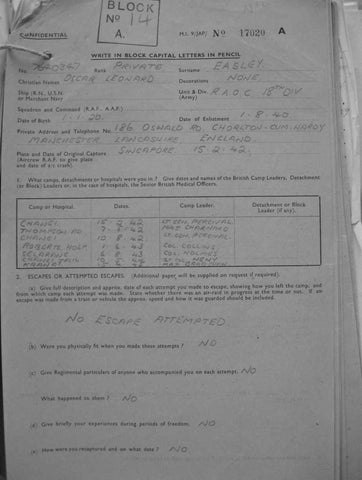 BLOCK
Nº 14
A.
CONFIDENTIAL
M.I. 9/JAP/ Nº 17020 A
WRITE IN BLOCK CAPITAL LETTERS IN PENCIL
No. Rank PRIVATE Surname EASLEY
Christian Names OSCAR LEONARD Decorations NONE.
Ship (R.N., U.S.N. or Merchant Navy Unit & Div. (Army) R.A.O.C. 18TH DIV
Squadron and Command (R.A.F., A.A.F.)
Date of Birth 1.20. Date of Enlistment 1.8.40
Private Address and Telephone No. 186 OSWALD RD, CHORLTON-CUM-HARDY
MANCHESTER LANCASHIRE, ENGLAND
Place and Date of Original Capture SINGAPORE 15.2.42.
(Aircrew R.A.F. to give place
and date of a/c crash).
1. What camps, detachments or hospitals were you in? Give dates and names of the British Camp Leaders, Detachment
(or Block) Leaders or, in the case of hospitals, the Senior British Medical Officers.
Camp or Hospital. Dates. Camp Leader. Detachment or Block Leader (if any).
CHANGI 15 2 42 PERCIVAL
THOMPSON RD
CHANGI 10 8 42 PERCIVAL
ROBERTS HOSP 1 6 43 COL. COLLINS
SELARANG 6 8 43 COL. HOLMES
KRANJI
2. ESCAPES OR ATTEMPTED ESCAPES. (Additional paper will be supplied on request if required).
(a) Give full description and approx. date of each attempt you made to escape, showing how you left the camp, and
from which camp each attempt was made. State whether there was an air-raid in progress at the time or not. If an
escape was made from a train or vehicle the approx. speed and how it was guarded should be included.
NO ESCAPE ATTEMPTED
(b) Were you physically fit when you made these attempts? NO
(c) Give Regimental particulars of anyone who accompanied you on each attempt. NO
What happened to them? NO
(d) Give briefly your experiences during periods of freedom. NO
(e) How were you recaptured and on what date? NO